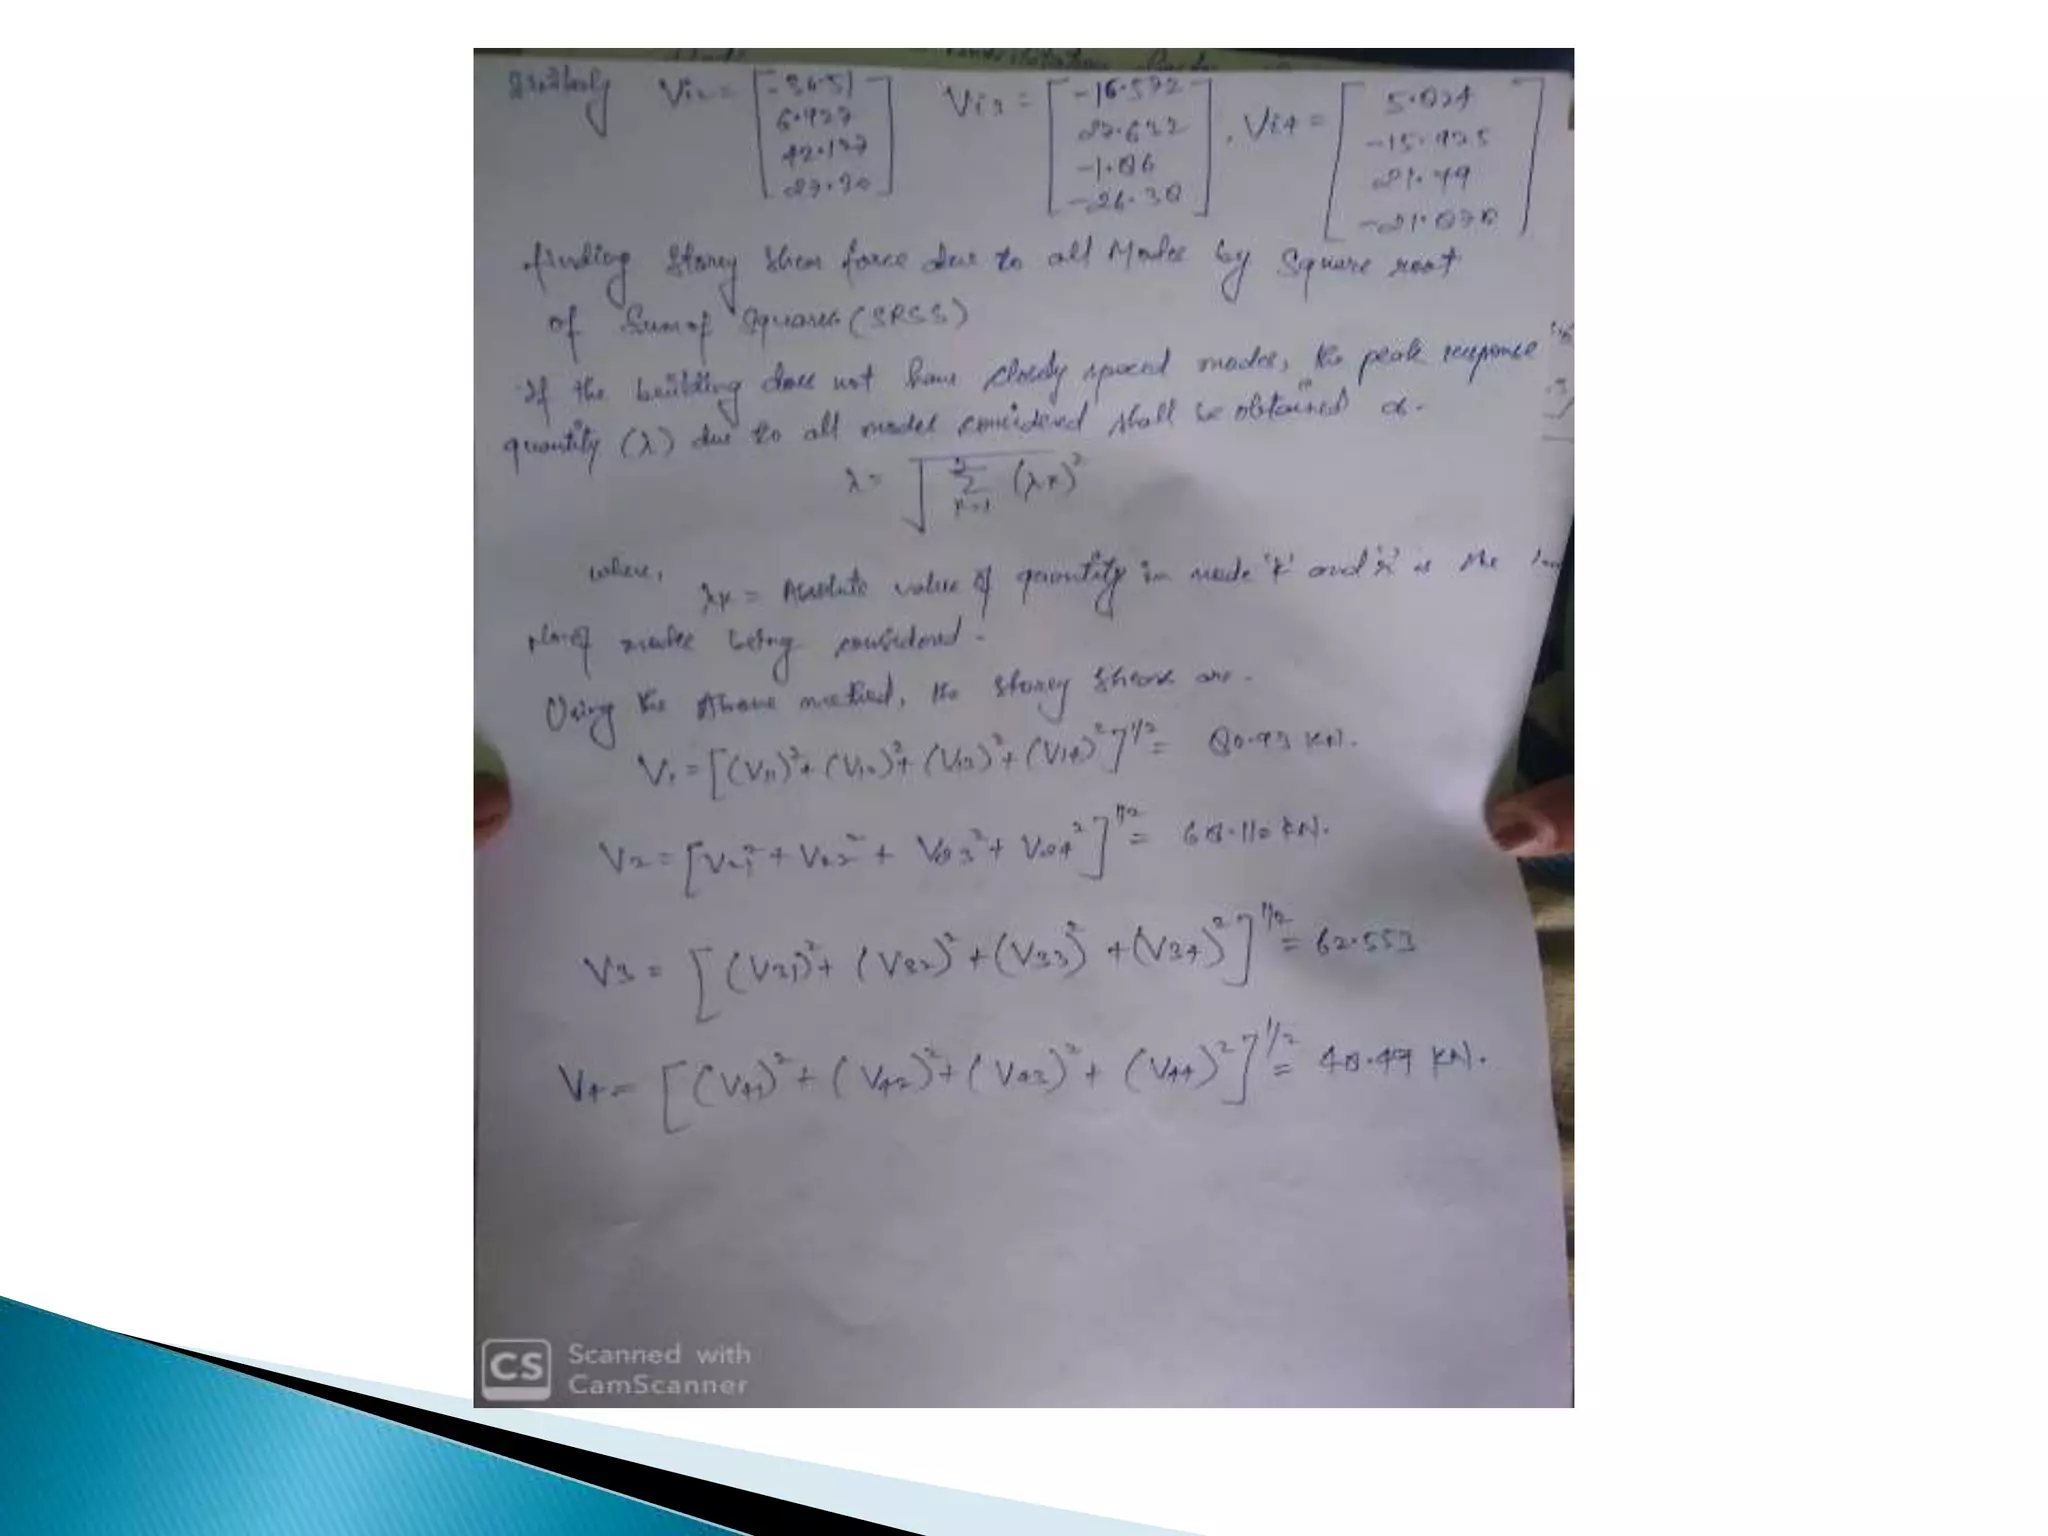 Similarly Vi2 = [-36.51 6.927 42.127 27.30] Vi3 = [-16.572 27.622 -1.86 -26.38], Vi4 = [5.824 -15.925 21.79 -21.878]
finding storey shear force due to all Modes by square root
of Sum of squares (SRSS)
If the building does not have closely spaced modes, the peak response
quantity (λ) due to all modes considered shall be obtained as.
λ = √Σ (λK)²
K=1
where,
λK = Absolute value of quantity in mode 'K' and 'r' is the
No. of modes being considered.
Using the Above method, the storey shears are.
V1 = [(V11)² + (V12)² + (V13)² + (V14)²]^1/2 = 80.93 KN.
V2 = [V21² + V22² + V23² + V24²]^1/2 = 68.110 KN.
V3 = [(V31)² + (V32)² + (V33)² + (V34)²]^1/2 = 62.553
V4 = [(V41)² + (V42)² + (V43)² + (V44)²]^1/2 = 48.49 KN.
CS Scanned with
CamScanner